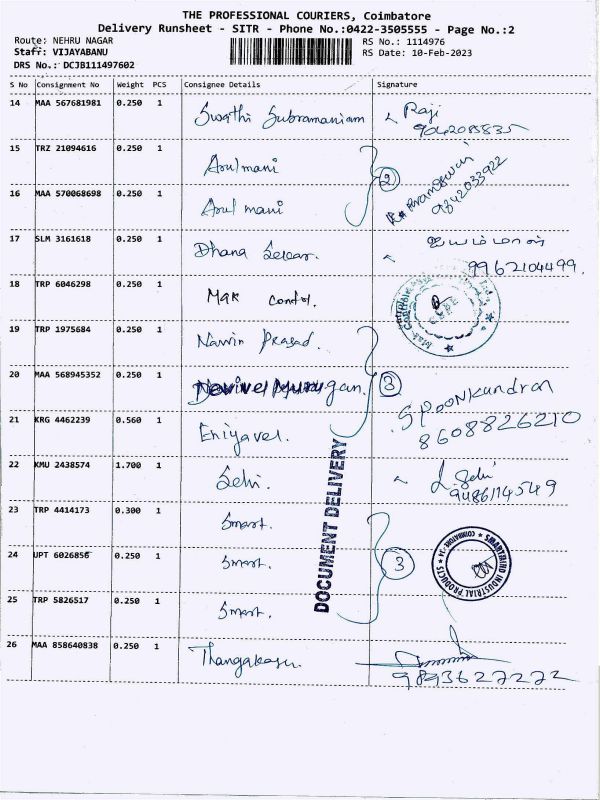 THE PROFESSIONAL COURIERS, Coimbatore
Delivery Runsheet - SITR - Phone No.:0422-3505555 - Page No.:2
Route: NEHRU NAGAR
Staff: VIJAYABANU
DRS No.: DCJB111497602
RS No.: 1114976
RS Date: 10-Feb-2023
S No Consignment No Weight PCS Consignee Details Signature
14 MAA 567681981 0.250 1 Swathi Subramaniam Raji
9042085835
15 TRZ 21094616 0.250 1 Arulmani
16 MAA 570068698 0.250 1 Arul mani
2
9342033922
17 SLM 3161618 0.250 1 Dhana Sekar.
9962104499.
18 TRP 6046298 0.250 1 Mak Control.
19 TRP 1975684 0.250 1 Navin Prasad.
20 MAA 568945352 0.250 1
3
S Poonkundran
21 KRG 4462239 0.560 1 Eniyavel.
8608826210
22 KMU 2438574 1.700 1 Selvi. L. Selvi
9486114549
DOCUMENT DELIVERY
23 TRP 4414173 0.300 1 Smart.
24 UPT 6026856 0.250 1 Smart.
3
SMARTHIRD INDUSTRIAL PRODUCTS
COIMBATORE-14
25 TRP 5826517 0.250 1 Smart.
26 MAA 858640838 0.250 1
9893627272